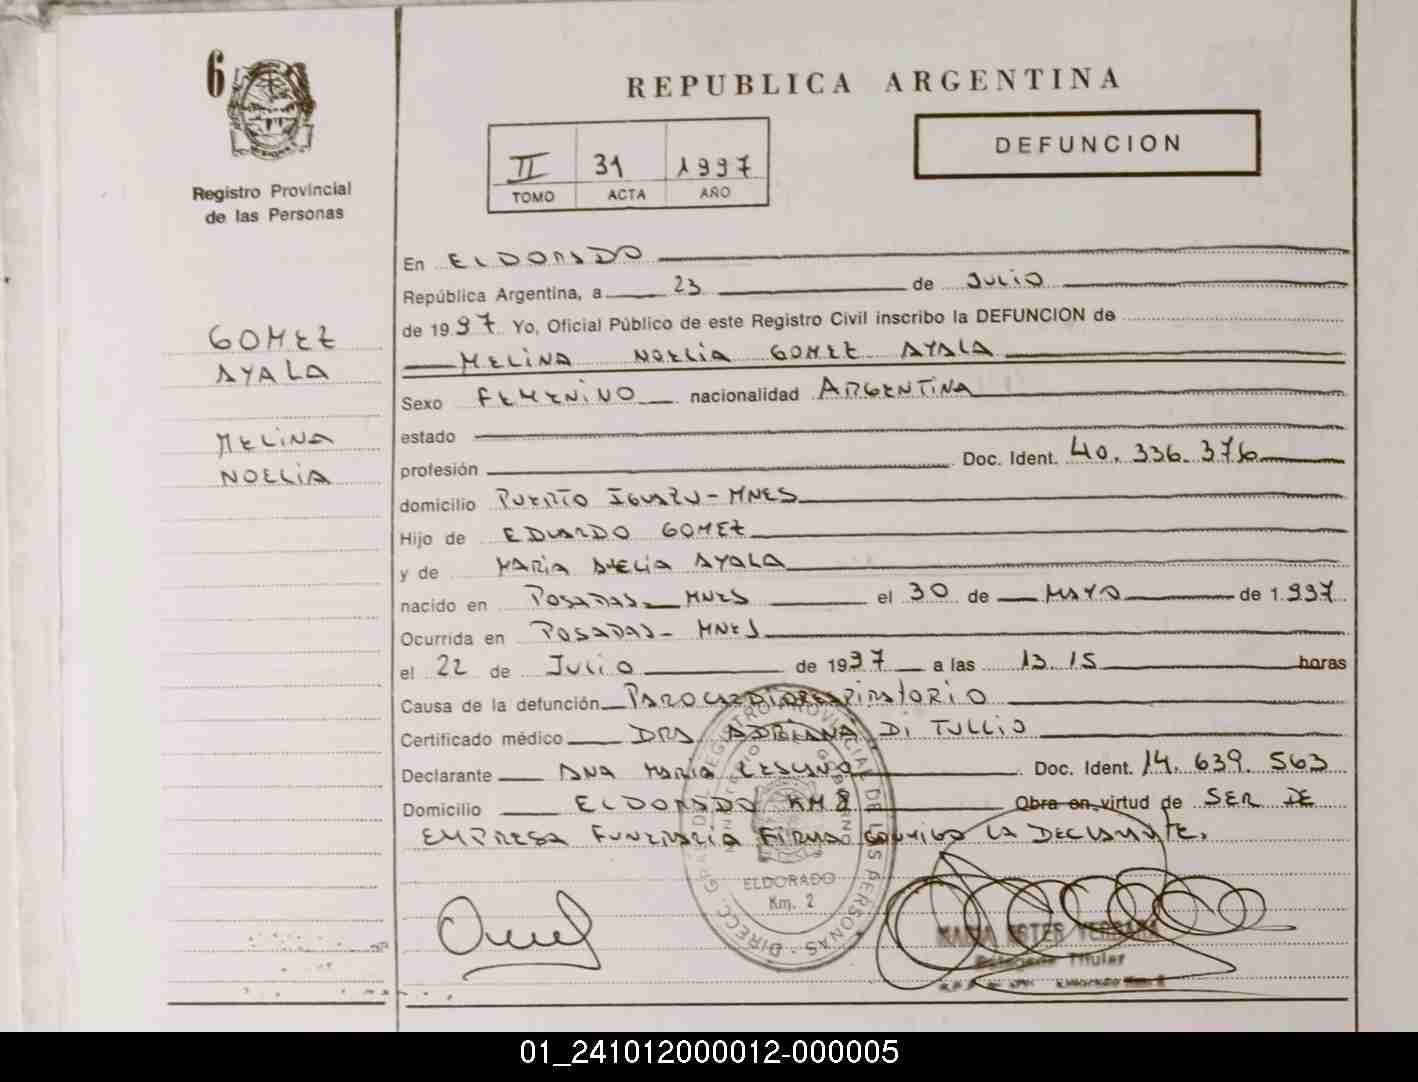 6
Registro Provincial
de las Personas
GOMEZ
AYALA
MELINA
NOELIA
REPUBLICA ARGENTINA
II 31 1997
TOMO ACTA AÑO
DEFUNCION
En ELDORADO
República Argentina, a 23 de JULIO
de 1997 Yo, Oficial Público de este Registro Civil inscribo la DEFUNCION de
MELINA NOELIA GOMEZ AYALA
Sexo FEMENINO nacionalidad ARGENTINA
estado
profesión Doc. Ident. 40.336.376
domicilio PUERTO IGUAZU - MNES
Hijo de EDUARDO GOMEZ
y de MARIA AMELIA AYALA
nacido en POSADAS - MNES el 30 de MAYO de 1.997
Ocurrida en POSADAS - MNES
el 22 de JULIO de 1997 a las 13.15 horas
Causa de la defunción PARO CARDIORESPIRATORIO
Certificado médico DRA ADRIANA DI TULLIO
Declarante ANA MARIA Doc. Ident. 14.639.563
Domicilio ELDORADO KM 8 Obra en virtud de SER DE
EMPRESA FUNERARIA FIRMA CONMIGO LA DECLARANTE.
DIRECC. GRAL. DEL REGISTRO PROVINCIAL DE LAS PERSONAS
MINISTERIO GOBIERNO
ELDORADO
Km. 2
MARIA ESTER
Titular
01_241012000012-000005